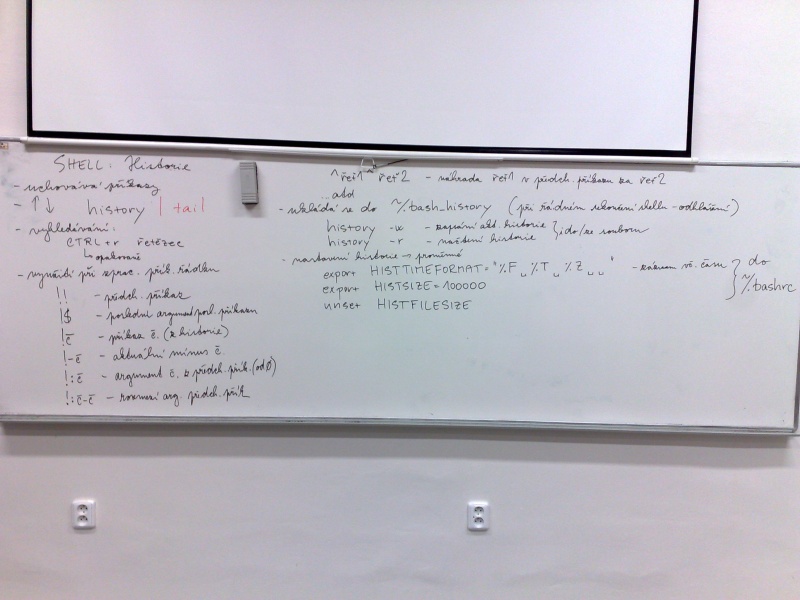 SHELL: Historie
- uchovává příkazy
- ↑↓ history | tail
- vyhledávání:
CTRL+r řetězec
↳ opakovaně
- využití při zprac. přík. řádku
!! - předch. příkaz
!$ - poslední argument posl. příkazu
!č - příkaz č. (z historie)
!-č - aktuální mínus č.
!:č - argument č. z předch. přík. (od 0)
!:č-č - rozmezí arg. předch. přík.
^řeť1^řeť2 - náhrada řeť1 v předch. příkazu za řeť2
...atd
- ukládá se do ~/.bash_history (při řádném ukončení shellu - odhlášení)
history -w - zapsání akt. historie } do/ze souboru
history -r - načtení historie
- nastavení historie → proměnné
export HISTTIMEFORMAT="%F␣%T␣%Z␣␣" - záznam vč. času } do ~/.bashrc
export HISTSIZE=100000
unset HISTFILESIZE